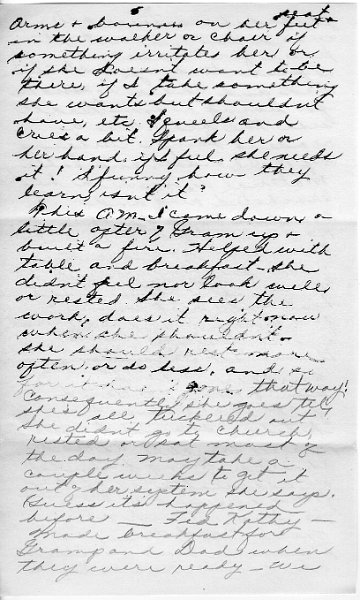 5
seat
arms & bounces on her feet &
in the walker or chair if
something irritates her or
if she doesn't want to be
there, if I take something
she wants but shouldn't
have, etc. Squeels and
cries a bit. Spank her or
her hand if I feel she needs
it! Funny how they
learn, isn't it"
This A.M. I came down a
little after 7 Gram up &
built a fire. Helped with
table and breakfast - she
didn't feel nor look well
or rested. She sees the
work, does it right now
when she shouldn't -
she should rest more
often or do less, and so
that way!
Consequently she goes till
she's all tuckered out
She didn't go to church,
rested or sat most of
the day. May take a
couple weeks to get it
out of her system she says.
Guess it's happened
before — Fed Kathy —
made breakfast for
Gramp and Dad when
they were ready - we